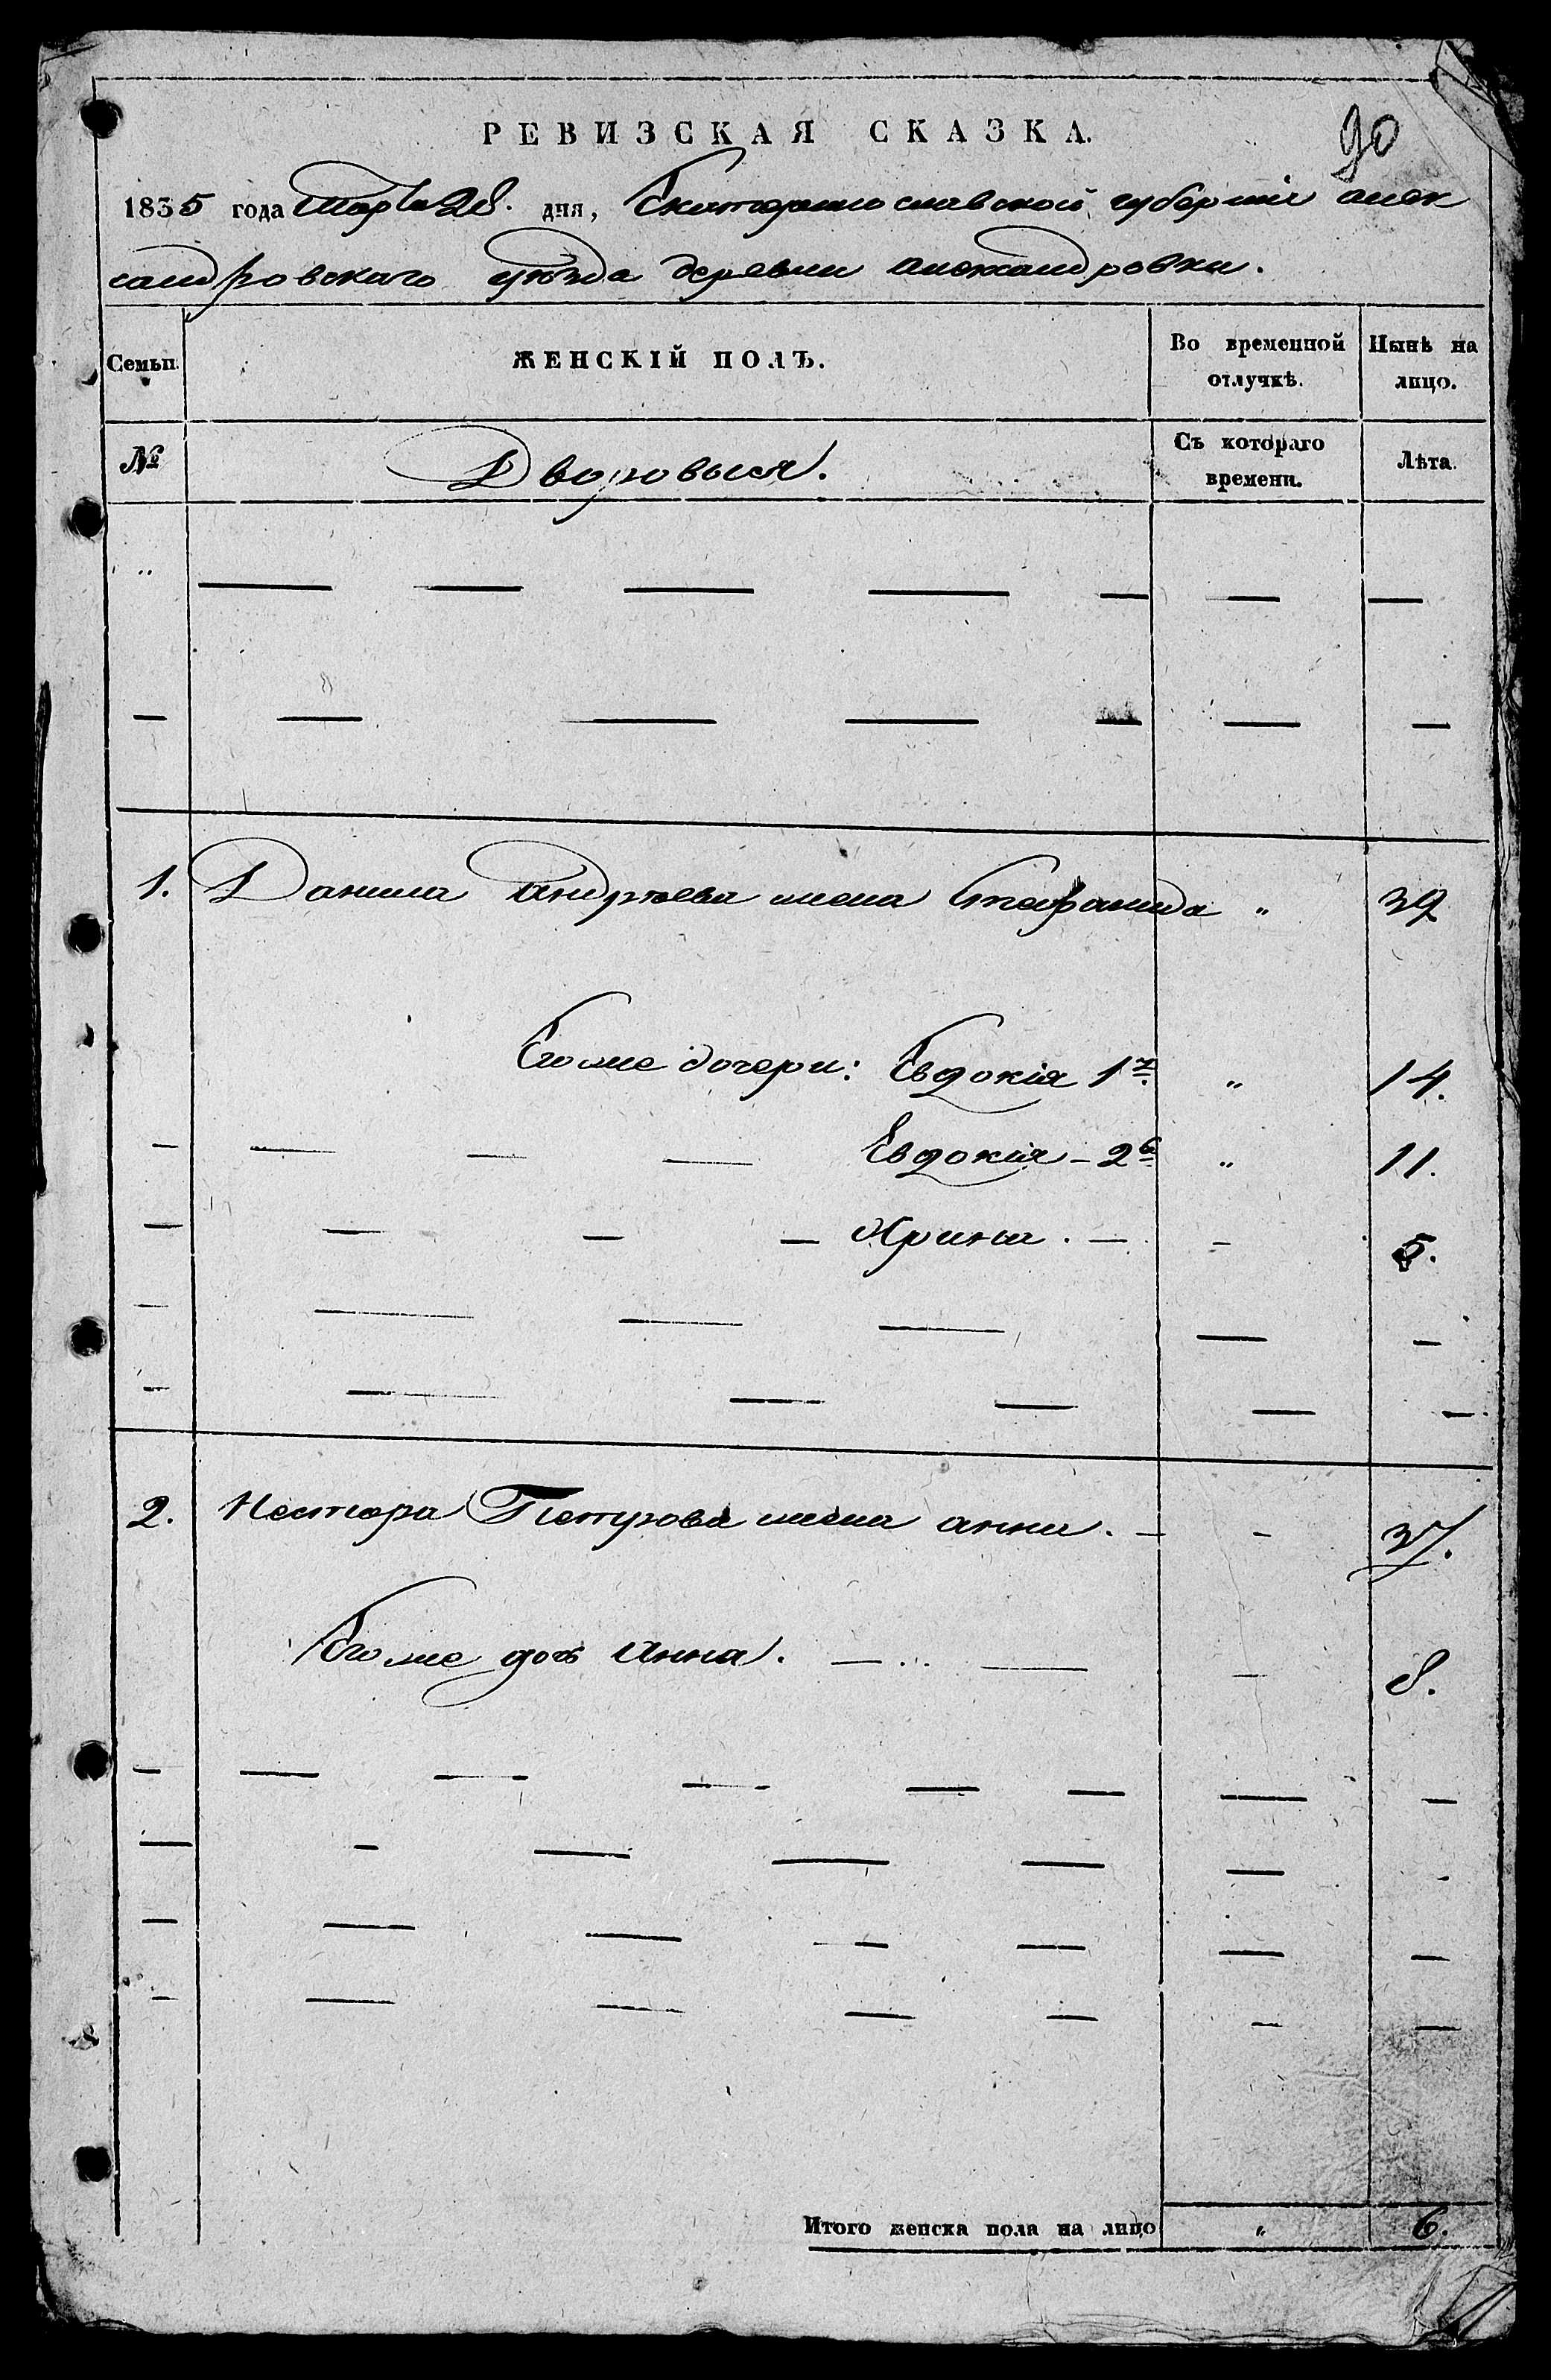 90
РЕВИЗСКАЯ СКАЗКА.
1835 года Марта 28. дня, Екатеринославской губерніи алек
сандровскаго уѣзда деревни александровки.
Семьи. ЖЕНСКІЙ ПОЛЪ. Во временной отлучкѣ. Нынѣ на лицо.
№ Дворовыя. Съ котораго времени. Лѣта.
1. Данила Андрѣева жена Стефанида " 39
Егоже дочери: Евдокія 1я " 14.
Евдокія - 2я " 11.
Ирина. — - 5.
2. Нестера Петрова жена анна. — - 37.
Егоже дочь Анна. — — - 8.
Итого женска пола на лицо " 6.